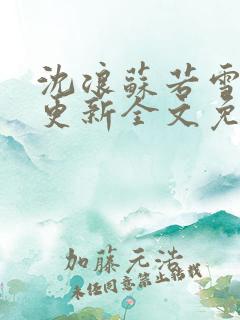 沈浪蘇若雪
更新全文免
加藤元浩
未经同意禁止转载